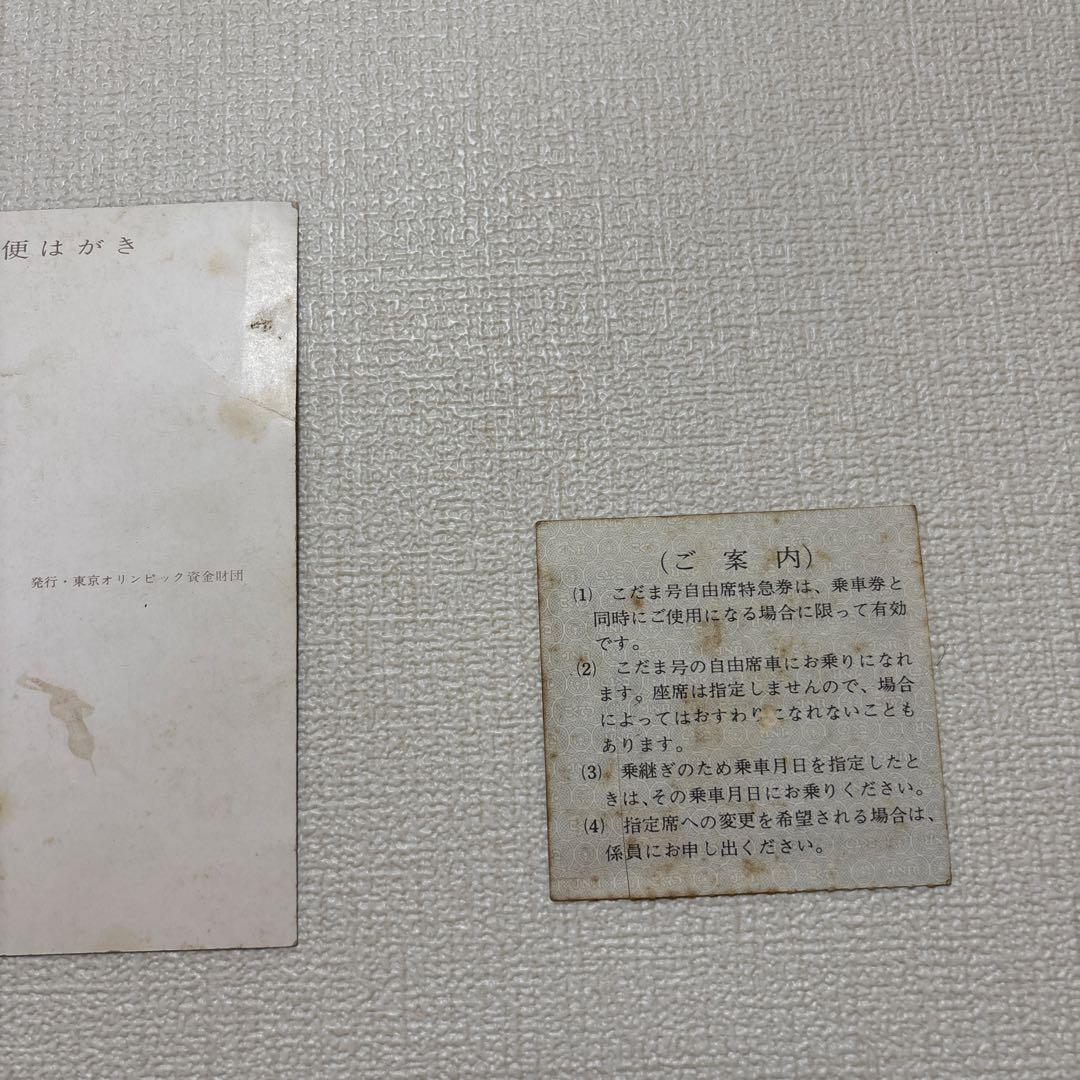 便はがき
発行・東京オリンピック資金財団
(ご案内)
(1) こだま号自由席特急券は、乗車券と
同時にご使用になる場合に限って有効
です。
(2) こだま号の自由席車にお乗りになれ
ます。座席は指定しませんので、場合
によってはおすわりになれないことも
あります。
(3) 乗継ぎのため乗車月日を指定したと
きは、その乗車月日にお乗りください。
(4) 指定席への変更を希望される場合は、
係員にお申し出ください。